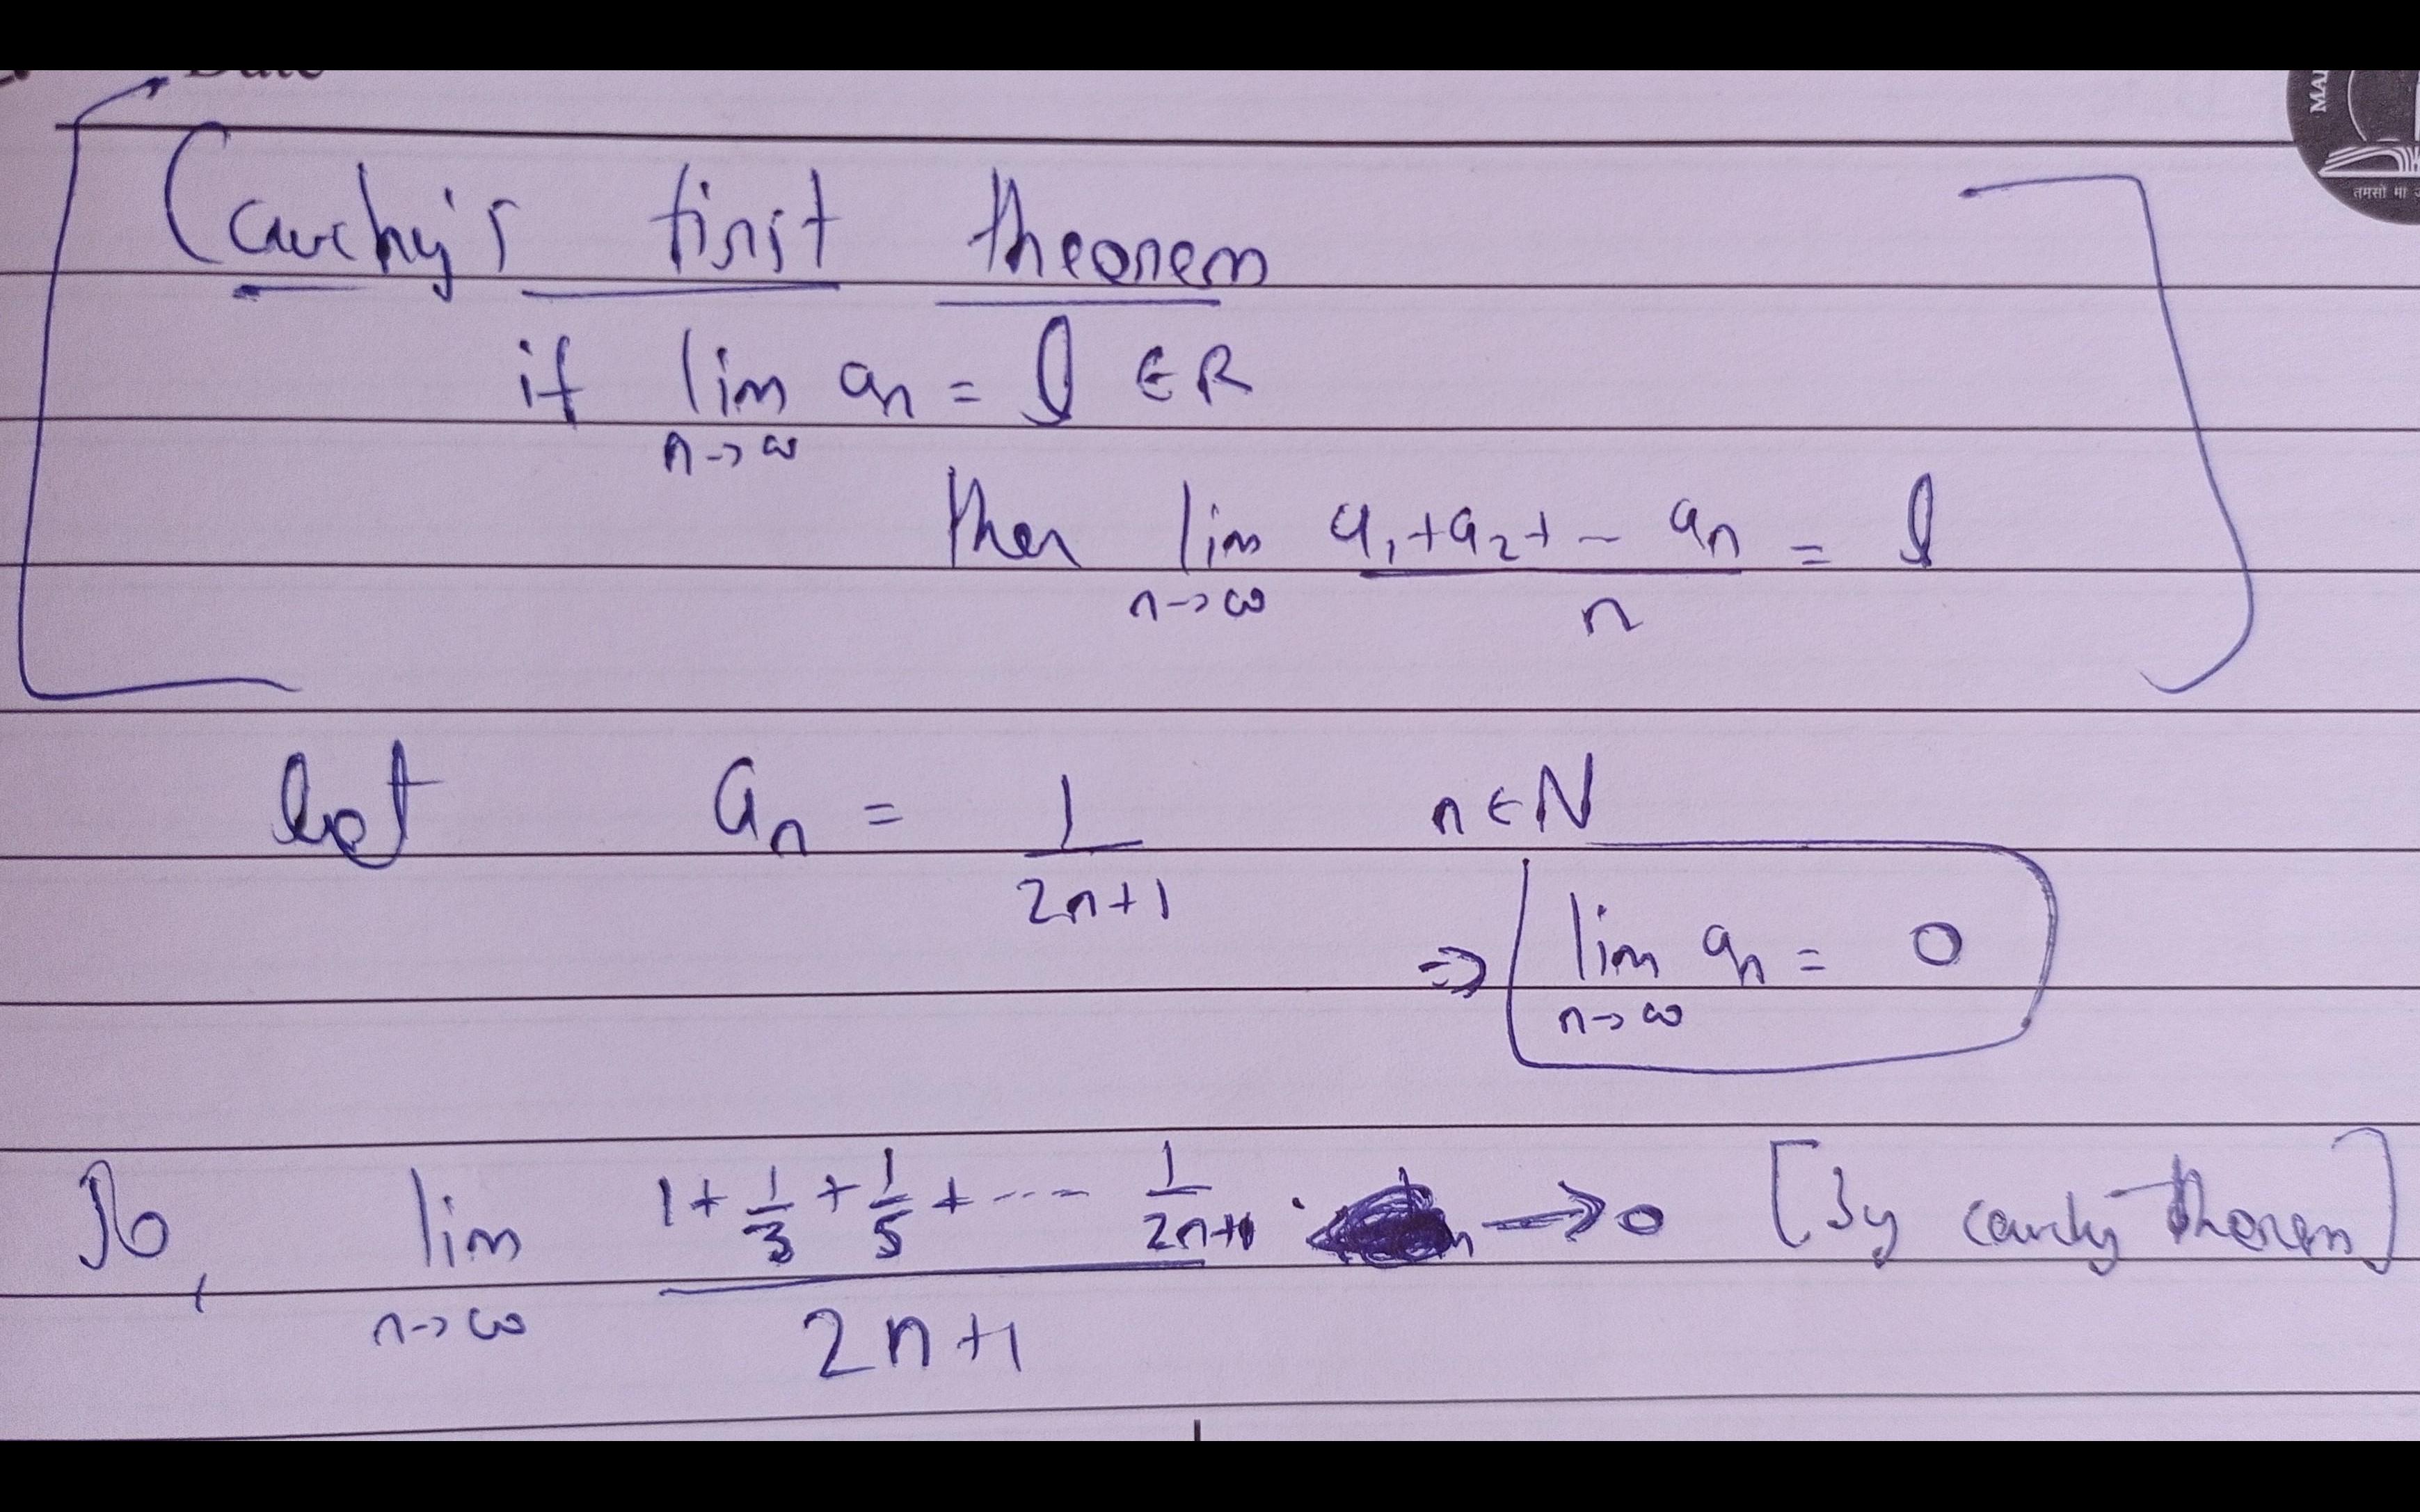 Date
(Cauchy's first theorem
if lim an = l ∈ R
n→∞
then lim a₁+a₂+ - an = l
n→∞ n
let an = 1/2n+1 n∈N
⇒ lim an = 0
n→∞
So, lim 1+1/3+1/5+---- 1/2n+1 → 0 [By cauchy theorem]
n→∞ 2n+1
MA
तमसो मा